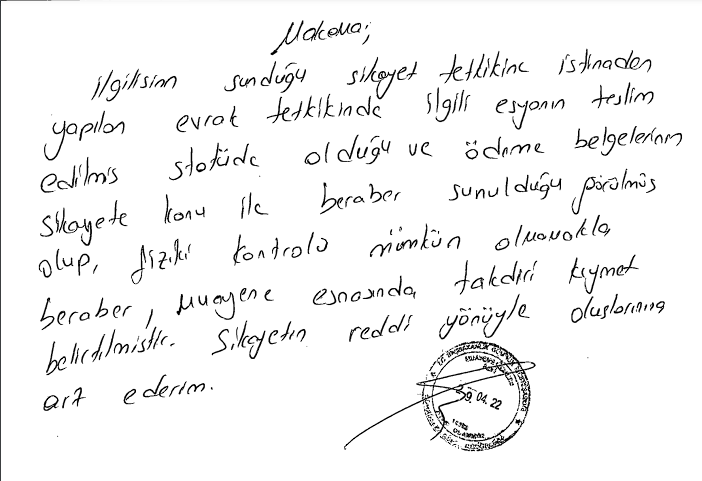 Makama;
ilgilisinin sunduğu şikayet tetkikine istinaden
yapılan evrak tetkikinde ilgili eşyanın teslim
edilmiş statüde olduğu ve ödeme belgelerinin
şikayete konu ile beraber sunulduğu görülmüş
olup, fiziki kontrolü mümkün olmamakla
beraber, muayene esnasında takdiri kıymet
belirtilmiştir. Şikayetin reddi yönüyle oluşlarınıza
arz ederim.
29.04.22